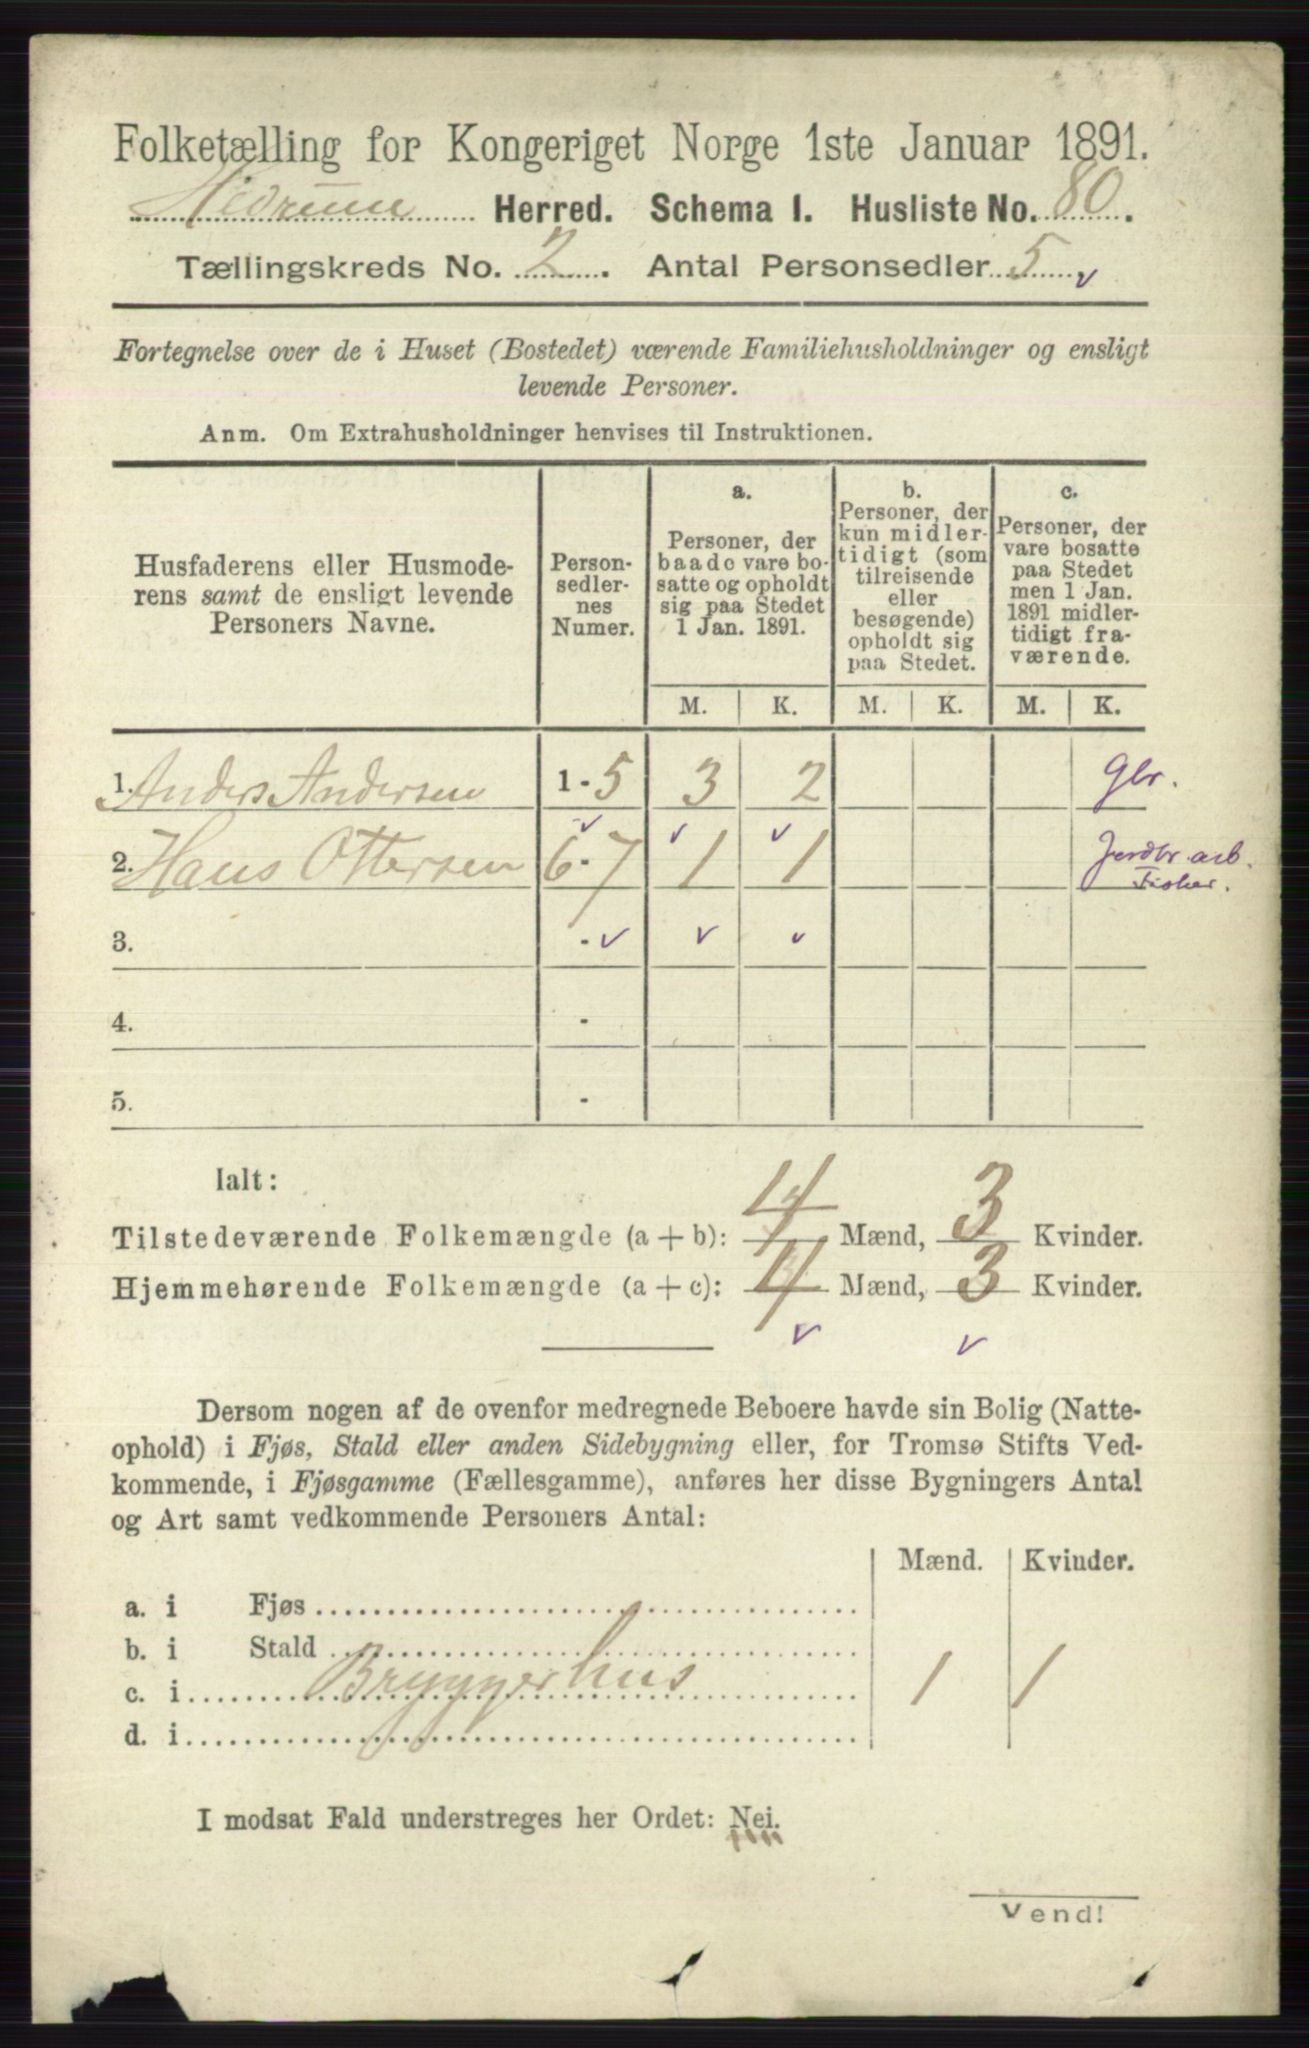 Folketælling for Kongeriget Norge 1ste Januar 1891.
Hedrum Herred. Schema I. Husliste No. 80.
Tællingskreds No. 2. Antal Personsedler 5 v
Fortegnelse over de i Huset (Bostedet) værende Familiehusholdninger og ensligt
levende Personer.
Anm. Om Extrahusholdninger henvises til Instruktionen.
Husfaderens eller Husmode-
rens samt de ensligt levende
Personers Navne.
Person-
sedler-
nes
Numer.
a.
Personer, der
baade vare bo-
satte og opholdt
sig paa Stedet
1 Jan. 1891.
b.
Personer, der
kun midler-
tidigt (som
tilreisende
eller
besøgende)
opholdt sig
paa Stedet.
c.
Personer, der
vare bosatte
paa Stedet
men 1 Jan.
1891 midler-
tidigt fra-
værende.
M. K. M. K. M. K.
1. Anders Andersen 1 - 5 3 2 Gbr.
v v v
2. Hans Ottersen 6 - 7 1 1 Jordbr. arb.
Fisker.
3. - v v v
4. -
5. -
Ialt:
Tilstedeværende Folkemængde (a + b): 4 Mænd, 3 Kvinder.
Hjemmehørende Folkemængde (a + c): 4 Mænd, 3 Kvinder.
v v
Dersom nogen af de ovenfor medregnede Beboere havde sin Bolig (Natte-
ophold) i Fjøs, Stald eller anden Sidebygning eller, for Tromsø Stifts Ved-
kommende, i Fjøsgamme (Fællesgamme), anføres her disse Bygningers Antal
og Art samt vedkommende Personers Antal:
Mænd. Kvinder.
a. i Fjøs
b. i Stald
c. i Bryggerhus 1 1
d. i
I modsat Fald understreges her Ordet: Nei.
Vend!